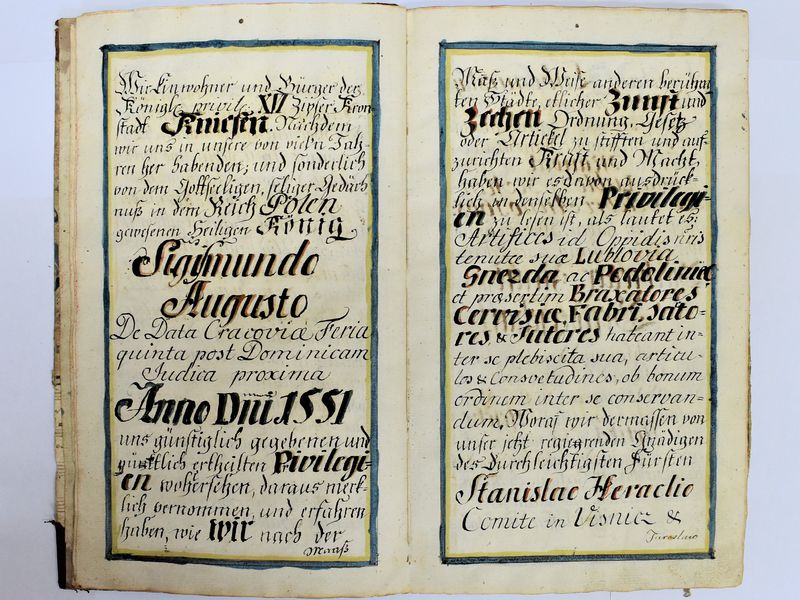 Wir Einwohner und Bürger der
Königl. privile. XVI Zipser Kron
stadt Kniesen. Nachdem
wir uns in unsere von vielen Jah-
ren her habenden; und sonderlich
von dem Gottseeligen, seliger Gedächt
nuß in dem Reich Polen
gewesenen Heiligen König
Sigismundo
Augusto
De Data Cracoviæ Feria
quinta post Dominicam
Judica proxima
Anno Dni 1551
uns günstiglich gegebenen und
ertheilten Privilegi-
en wohersehen, daraus merk-
lich vernommen, und erfahren
haben, wie wir nach der
Maaß
Maß und Weise anderen berühm
ten Städte, etlicher Zunft und
Zechen Ordnung, Gesetz
oder Artickel zu stifften und auf-
zurichten Krafft und Macht,
haben wir es davon ausdrück-
lich in denselben Privilegi-
en zu lesen ist, als lautet es:
Artifices id Oppidis nris
tenutæ suæ Lublovia
Gnezda ac Podolinia
et præsertim Braxatores
Cervisiæ, Fabri, Sato-
res & Sutores habeant in-
ter se plebiscita sua, articu-
los & Consvetudines, ob bonum
ordinem inter se conservan-
dum. Worauf wir dermassen von
unser jetzt regierenden Gnädigen
des Durchleichtigsten Fürsten
Stanislao Heraclio
Comite in Visnicz &
Jaroslaw